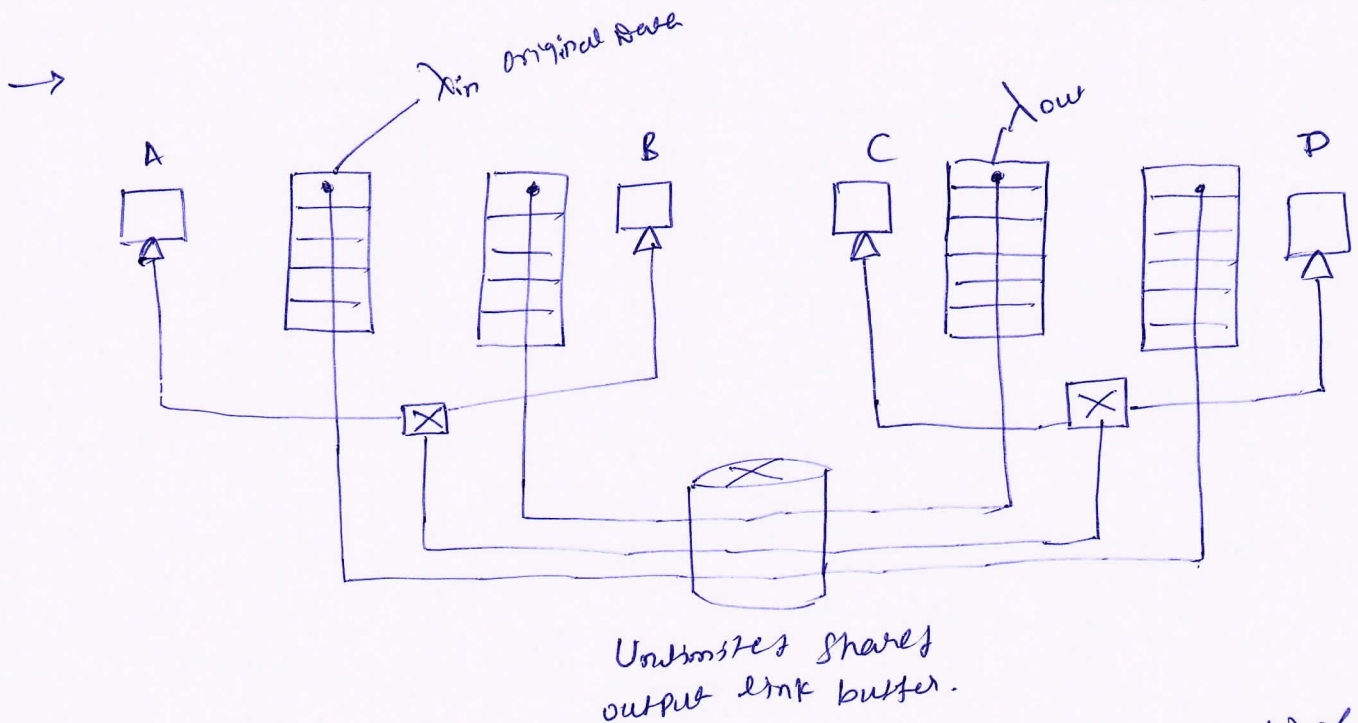 →
λin original Data
λout
A
B
C
D
Unlimited shared
output link buffer.